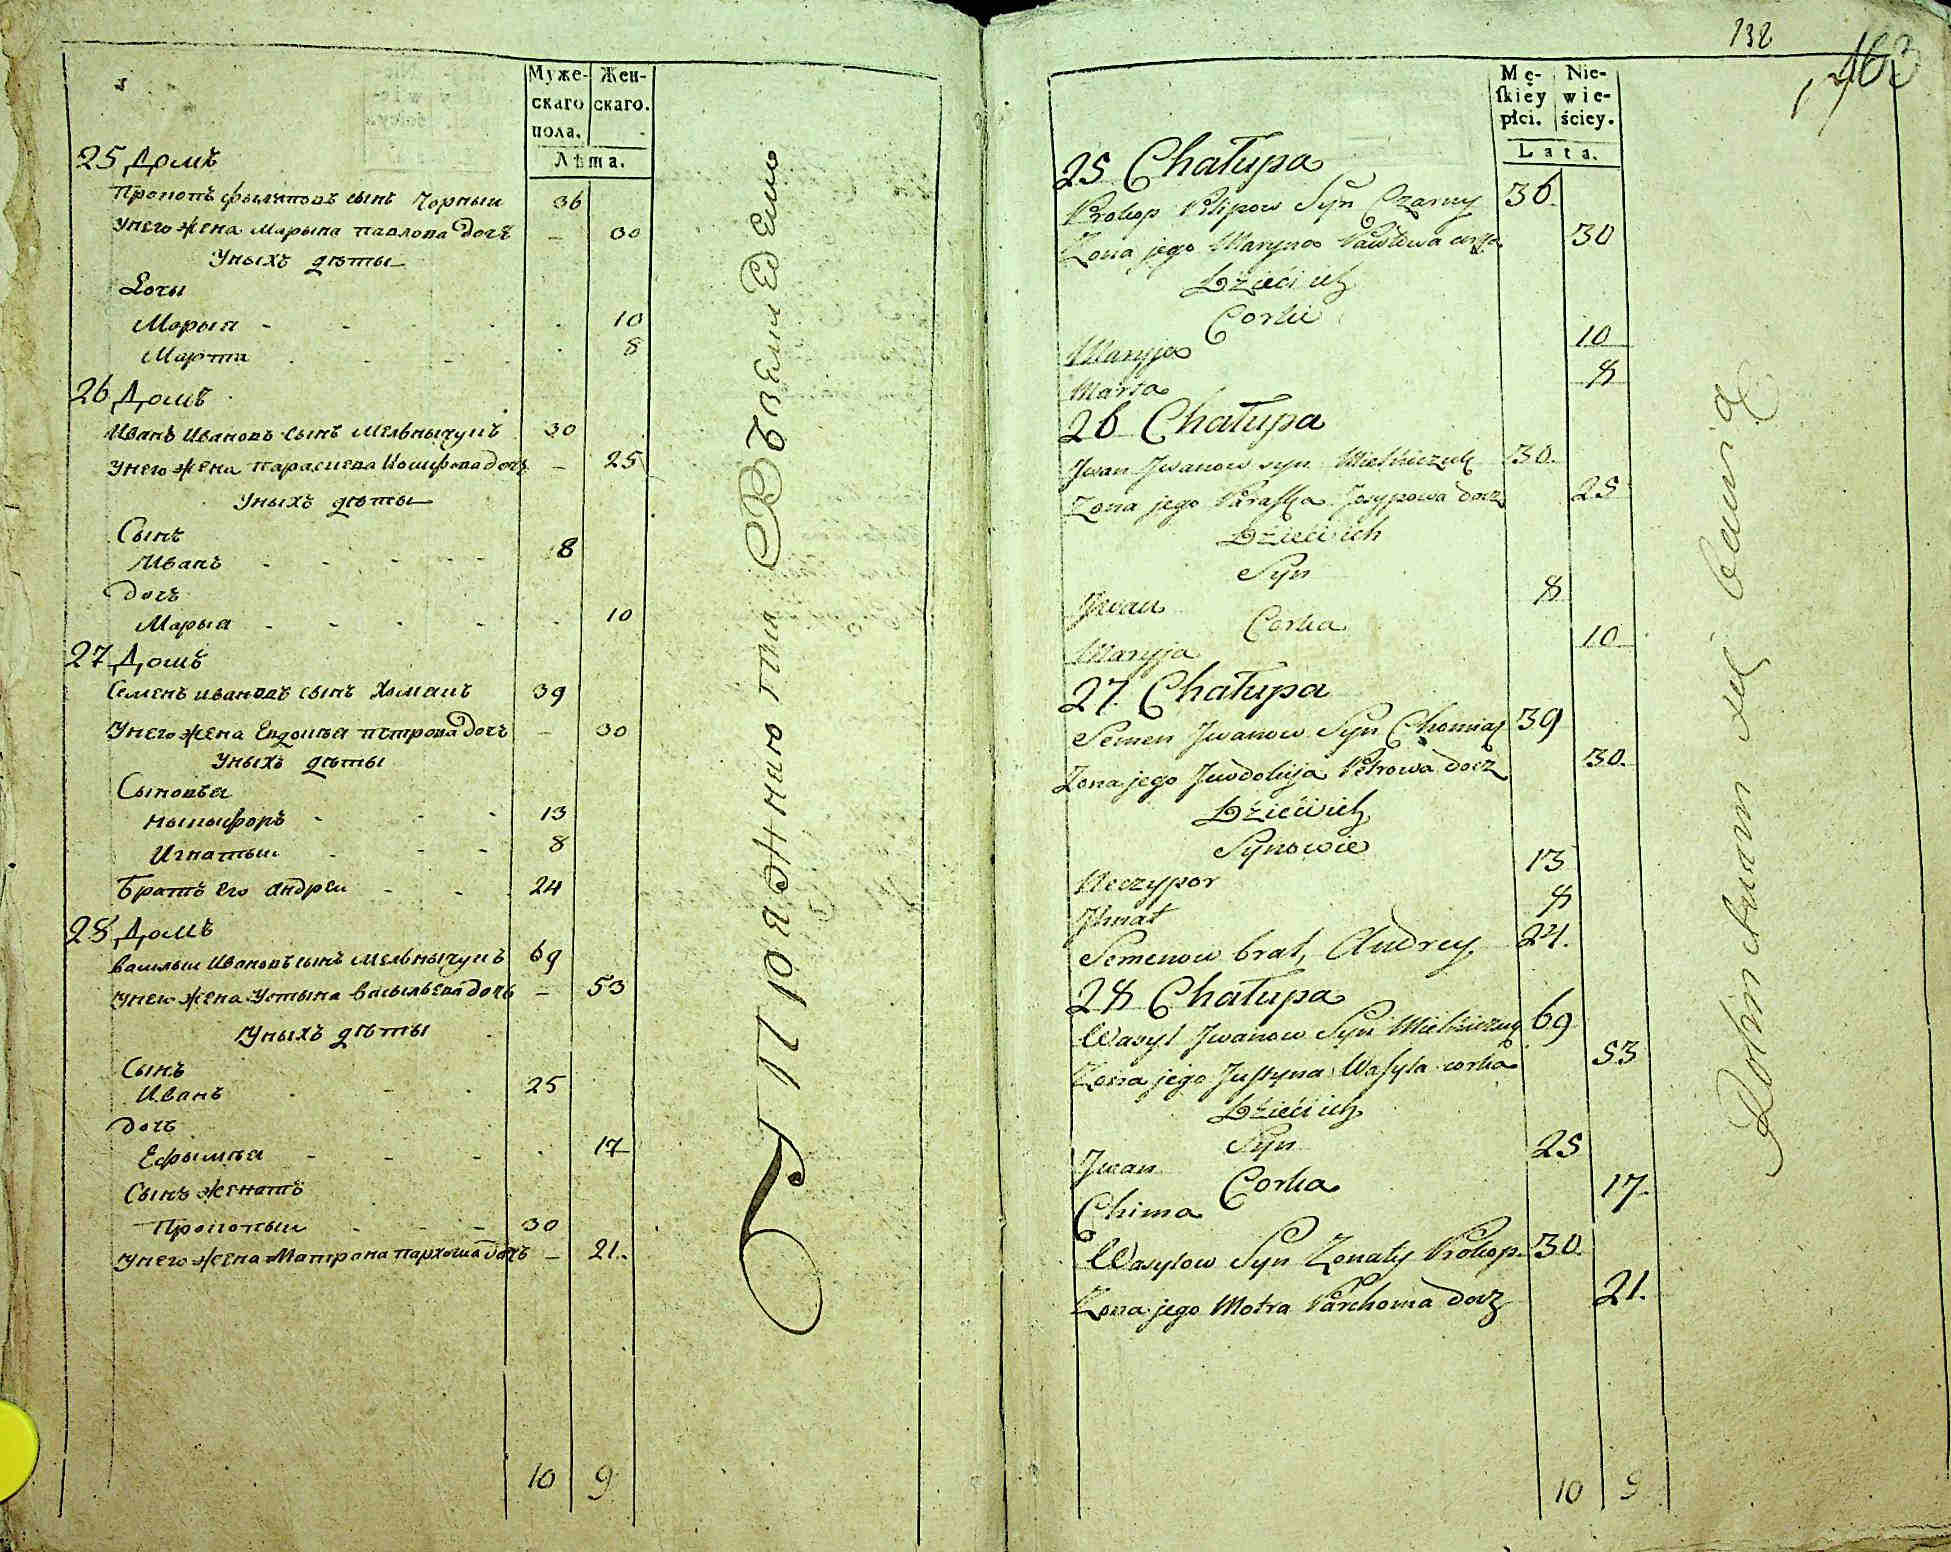 Муже-
скаго
пола.
Жен-
скаго.
Лѣта.
25 Домъ
Прокопъ филиповъ сынъ Чорный 36
Унего жена Марына павлова дочъ – 30
Уныхъ дѣты
Дочы
Марыя 10
Марта 8
26 Домъ
Иванъ Ивановъ сынъ Мельнычукъ 30
Унего жена параскева Иосифова дочъ – 25
Уныхъ дѣты
Сынъ
Иванъ 8
Дочъ
Марыя 10
27 Домъ
Семенъ ивановъ сынъ Хомакъ 39
Унего жена Евдокия петрова дочъ – 30
Уныхъ дѣты
Сыновья
Ныкыфоръ 13
Игнатый 8
Братъ его андрей 24
28 Домъ
василый Ивановъ сынъ Мельнычукъ 69
Унего жена Устына васыльева дочъ – 53
Уныхъ дѣты
Сынъ
Иванъ 25
Дочъ
Ефымия 17
Сынъ женатъ
Прокопый 30
Унего жена Матрона пархома дочъ – 21.
10 9
132
Mę-
skiey
płci.
Nie-
wie-
ściey.
Lata.
25 Chałupa
Prokop Pilipow Syn Czarny 36.
Zona jego Maryna Pawłowa 30
Dzieci ich
Corki
Maryja 10
Marta 8
26 Chałupa
Jwan Jwanow syn Mielniczuk 30.
Zona jego Paraska Josypowa docz 25
Dzieci ich
Syn
Jwan 8
Corka
Maryja 10
27. Chałupa
Semen Jwanow Syn Chomiak 39
Zona jego Juwdokija Petrowa docz 30.
Dzieci ich
Synowie
Neczypor 13
Jhnat 8
Semenow brat, Andrey 24.
28 Chałupa
Wasyl Jwanow Syn Mielniczuk 69
Zona jego Justyna Wasyla corka 53
Dzieci ich
Syn
Jwan 25
Corka
Chima 17.
Wasylow Syn Zonaty Prokop 30.
Zona jego Motra Parchoma docz 21.
10 9